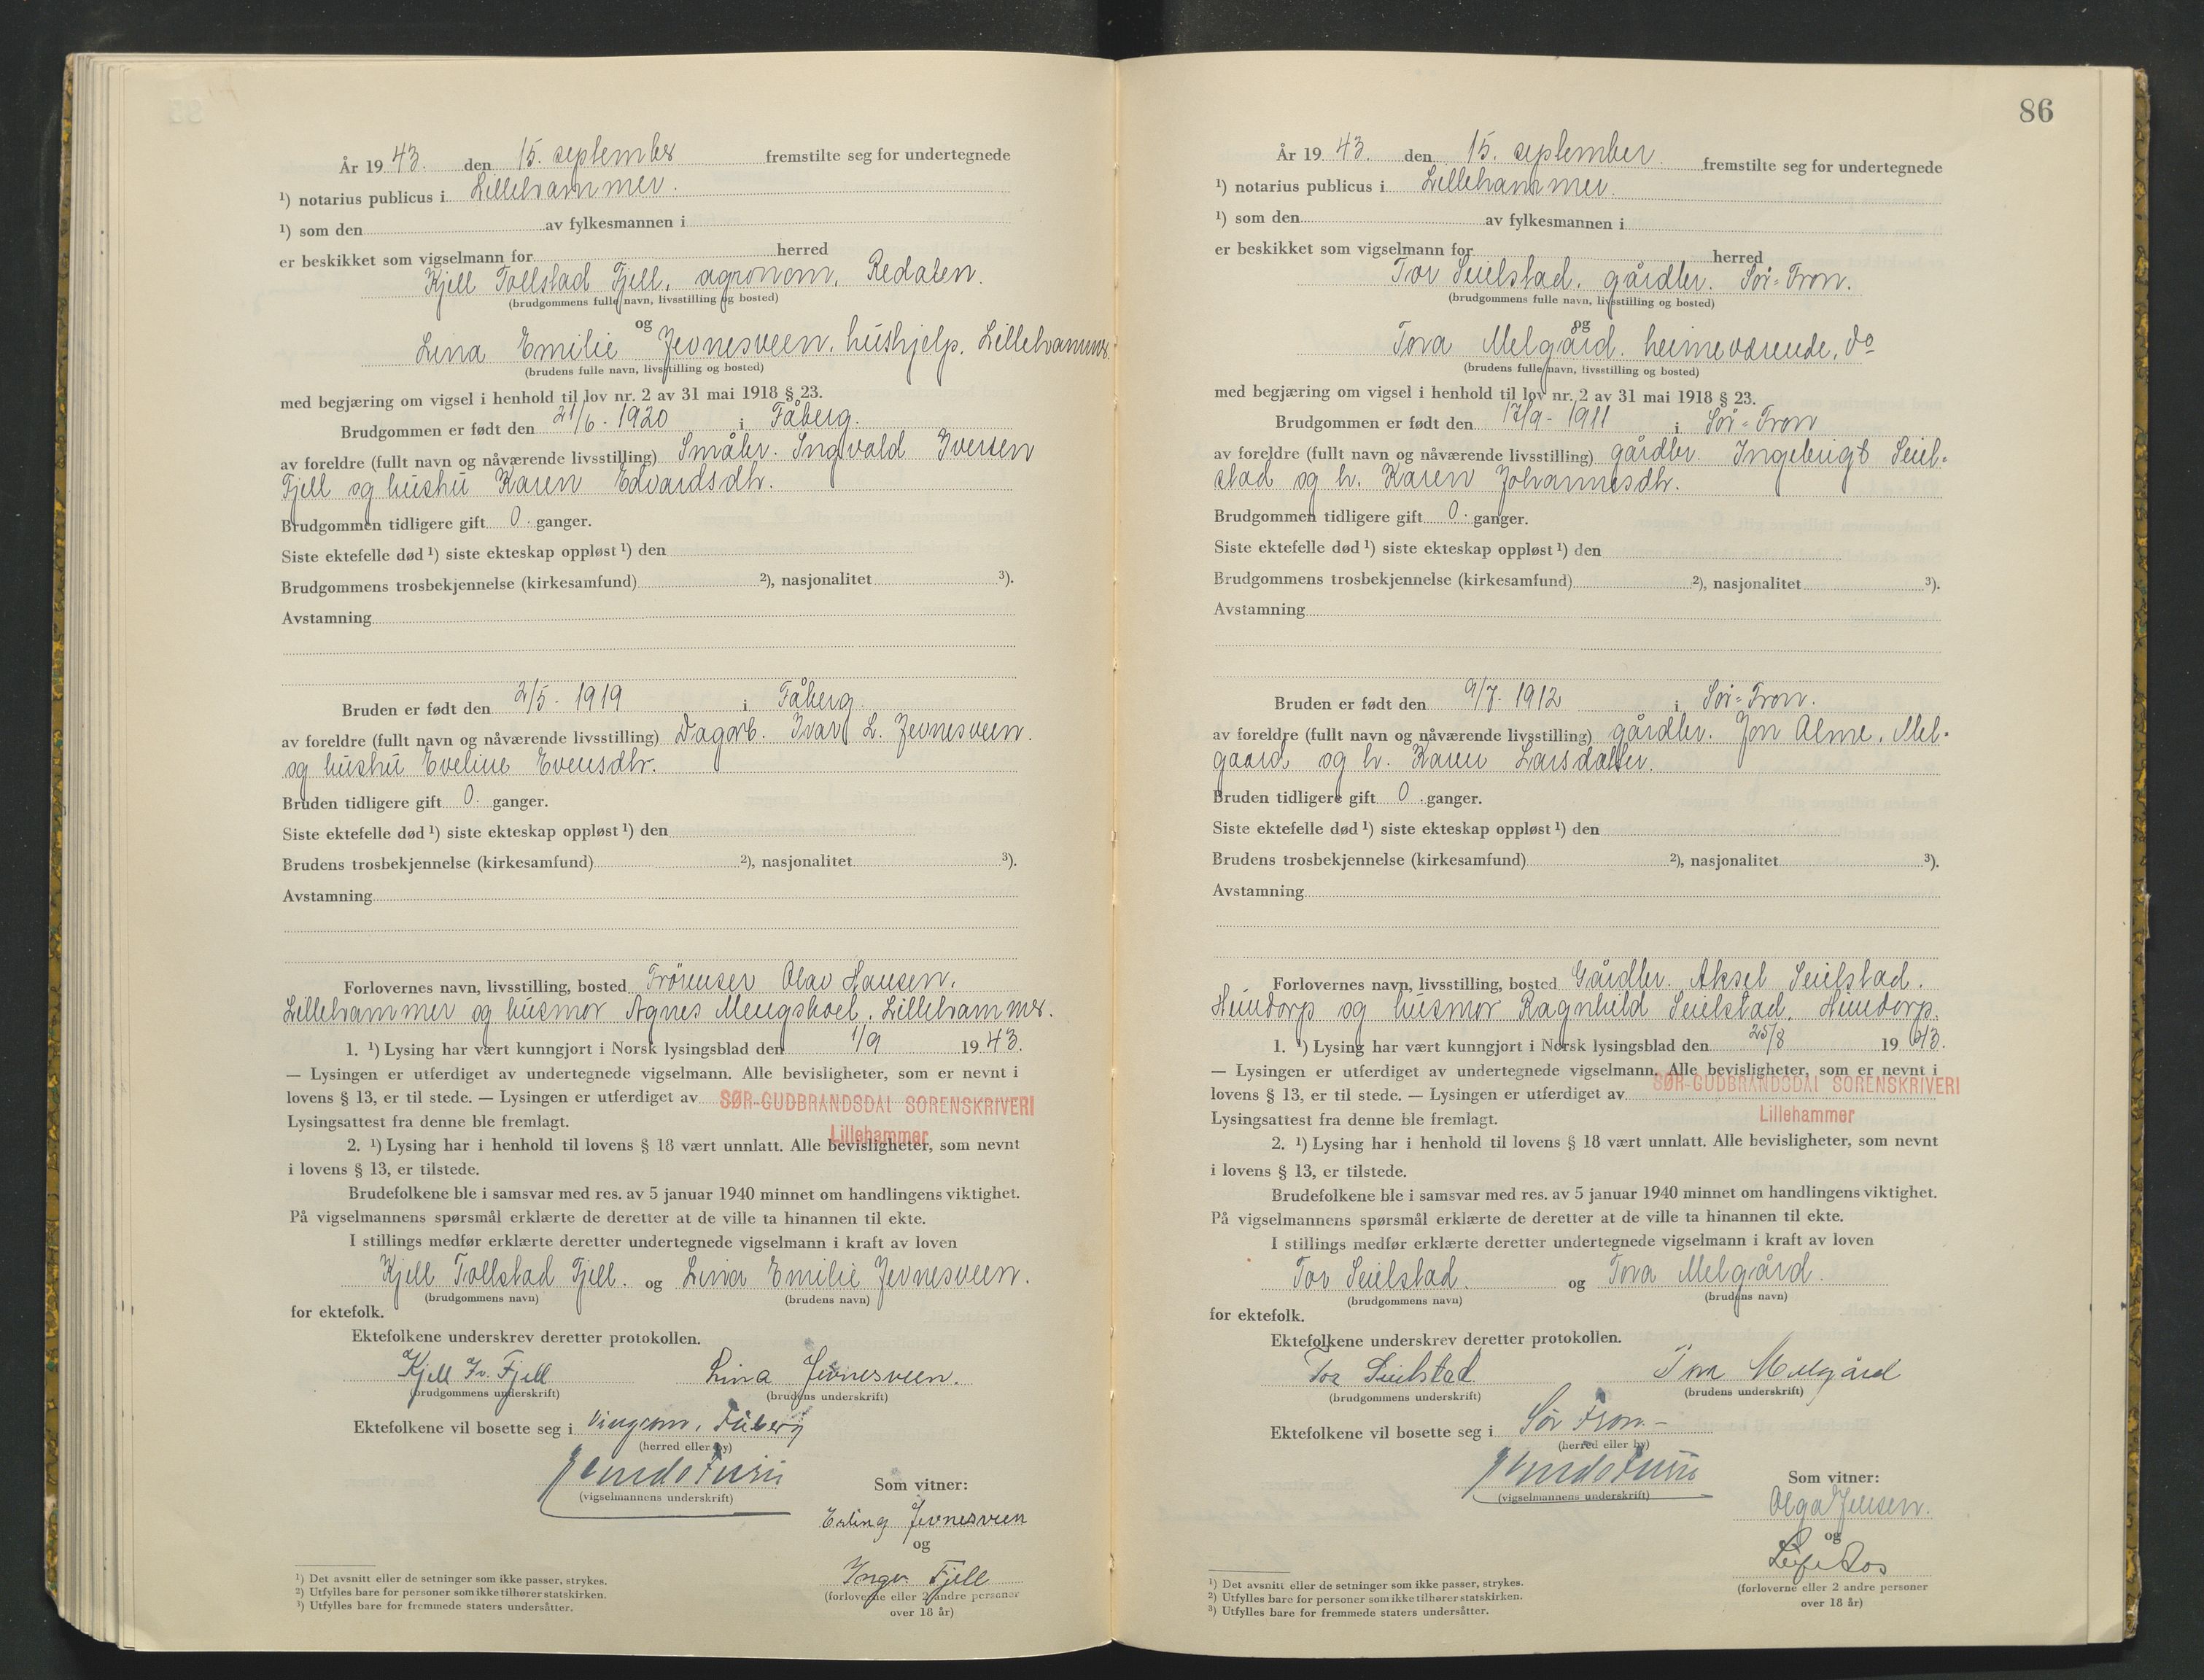 År 19 43. den 15. september fremstilte seg for undertegnede
¹) notarius publicus i Lillehammer.
¹) som den av fylkesmannen i
er beskikket som vigselmann for herred
Kjell Tollstad Fjell, agronom, Redalen.
(brudgommens fulle navn, livsstilling og bosted)
og
Lina Emilie Jevnesveen, hushjelp, Lillehammer.
(brudens fulle navn, livsstilling og bosted)
med begjæring om vigsel i henhold til lov nr. 2 av 31 mai 1918 § 23.
Brudgommen er født den 21/6 - 1920 i Fåberg.
av foreldre (fullt navn og nåværende livsstilling) Småbr. Ingvald Iversen
Fjell og hushu Karen Edvardsdtr.
Brudgommen tidligere gift 0. ganger.
Siste ektefelle død ¹) siste ekteskap oppløst ¹) den
Brudgommens trosbekjennelse (kirkesamfund) ²), nasjonalitet ³).
Avstamning
Bruden er født den 2/5 - 1919 i Fåberg.
av foreldre (fullt navn og nåværende livsstilling) Dagarb. Ivar L. Jevnesveen.
og hushu Eveline Evensdtr.
Bruden tidligere gift 0. ganger.
Siste ektefelle død ¹) siste ekteskap oppløst ¹) den
Brudens trosbekjennelse (kirkesamfund) ²), nasjonalitet ³).
Avstamning
Forlovernes navn, livsstilling, bosted Frörenser Olav Hansen,
Lillehammer og husmor Agnes Mengshoel, Lillehammer.
1. ¹) Lysing har vært kunngjort i Norsk lysingsblad den 1/9 19 43.
— Lysingen er utferdiget av undertegnede vigselmann. Alle bevisligheter, som er nevnt i
lovens § 13, er til stede. — Lysingen er utferdiget av SØR-GUDBRANDSDAL SORENSKRIVERI
Lysingsattest fra denne ble fremlagt.
Lillehammer
2. ¹) Lysing har i henhold til lovens § 18 vært unnlatt. Alle bevisligheter, som nevnt
i lovens § 13, er tilstede.
Brudefolkene ble i samsvar med res. av 5 januar 1940 minnet om handlingens viktighet.
På vigselmannens spørsmål erklærte de deretter at de ville ta hinannen til ekte.
I stillings medfør erklærte deretter undertegnede vigselmann i kraft av loven
Kjell Tollstad Fjell. og Lina Emilie Jevnesveen.
(brudgommens navn) (brudens navn)
for ektefolk.
Ektefolkene underskrev deretter protokollen.
Kjell Fjell Lina Jevnesveen.
(brudgommens underskrift) (brudens underskrift)
Ektefolkene vil bosette seg i Vingrom, Fåberg
(herred eller by)
(vigselmannens underskrift)
Som vitner:
Erling Jevnesveen
og
Inger Fjell
(forloverne eller 2 andre personer
over 18 år)
¹) Det avsnitt eller de setninger som ikke passer, strykes.
²) Utfylles bare for personer som ikke tilhører statskirken.
³) Utfylles bare for fremmede staters undersåtter.
86
År 19 43. den 15. september. fremstilte seg for undertegnede
¹) notarius publicus i Lillehammer.
¹) som den av fylkesmannen i
er beskikket som vigselmann for herred
Tor Seielstad, gårdbr. Sör-Fron.
(brudgommens fulle navn, livsstilling og bosted)
og
Tora Melgård, heimeværende, do
(brudens fulle navn, livsstilling og bosted)
med begjæring om vigsel i henhold til lov nr. 2 av 31 mai 1918 § 23.
Brudgommen er født den 17/9 - 1911 i Sör-Fron
av foreldre (fullt navn og nåværende livsstilling) gårdbr. Ingebrigt Seiel-
stad og h. Karen Johannesdtr.
Brudgommen tidligere gift 0. ganger.
Siste ektefelle død ¹) siste ekteskap oppløst ¹) den
Brudgommens trosbekjennelse (kirkesamfund) ²), nasjonalitet ³).
Avstamning
Bruden er født den 9/7 - 1912 i Sör-Fron.
av foreldre (fullt navn og nåværende livsstilling) gårdbr. Jon Alme, Mel-
gaard og h. Karen Larsdatter.
Bruden tidligere gift 0. ganger.
Siste ektefelle død ¹) siste ekteskap oppløst ¹) den
Brudens trosbekjennelse (kirkesamfund) ²), nasjonalitet ³).
Avstamning
Forlovernes navn, livsstilling, bosted Gårdbr. Aksel Seielstad.
Hundorp og husmor Ragnhild Seielstad, Hundorp.
1. ¹) Lysing har vært kunngjort i Norsk lysingsblad den 25/8 19 43.
— Lysingen er utferdiget av undertegnede vigselmann. Alle bevisligheter, som er nevnt i
lovens § 13, er til stede. — Lysingen er utferdiget av SØR-GUDBRANDSDAL SORENSKRIVERI
Lysingsattest fra denne ble fremlagt. Lillehammer
2. ¹) Lysing har i henhold til lovens § 18 vært unnlatt. Alle bevisligheter, som nevnt
i lovens § 13, er tilstede.
Brudefolkene ble i samsvar med res. av 5 januar 1940 minnet om handlingens viktighet.
På vigselmannens spørsmål erklærte de deretter at de ville ta hinannen til ekte.
I stillings medfør erklærte deretter undertegnede vigselmann i kraft av loven
Tor Seielstad. og Tora Melgård.
(brudgommens navn) (brudens navn)
for ektefolk.
Ektefolkene underskrev deretter protokollen.
Tor Seielstad Tora Melgård
(brudgommens underskrift) (brudens underskrift)
Ektefolkene vil bosette seg i Sör Fron. -
(herred eller by)
(vigselmannens underskrift)
Som vitner:
Olga Jensen.
og
(forloverne eller 2 andre personer
over 18 år)
¹) Det avsnitt eller de setninger som ikke passer, strykes.
²) Utfylles bare for personer som ikke tilhører statskirken.
³) Utfylles bare for fremmede staters undersåtter.